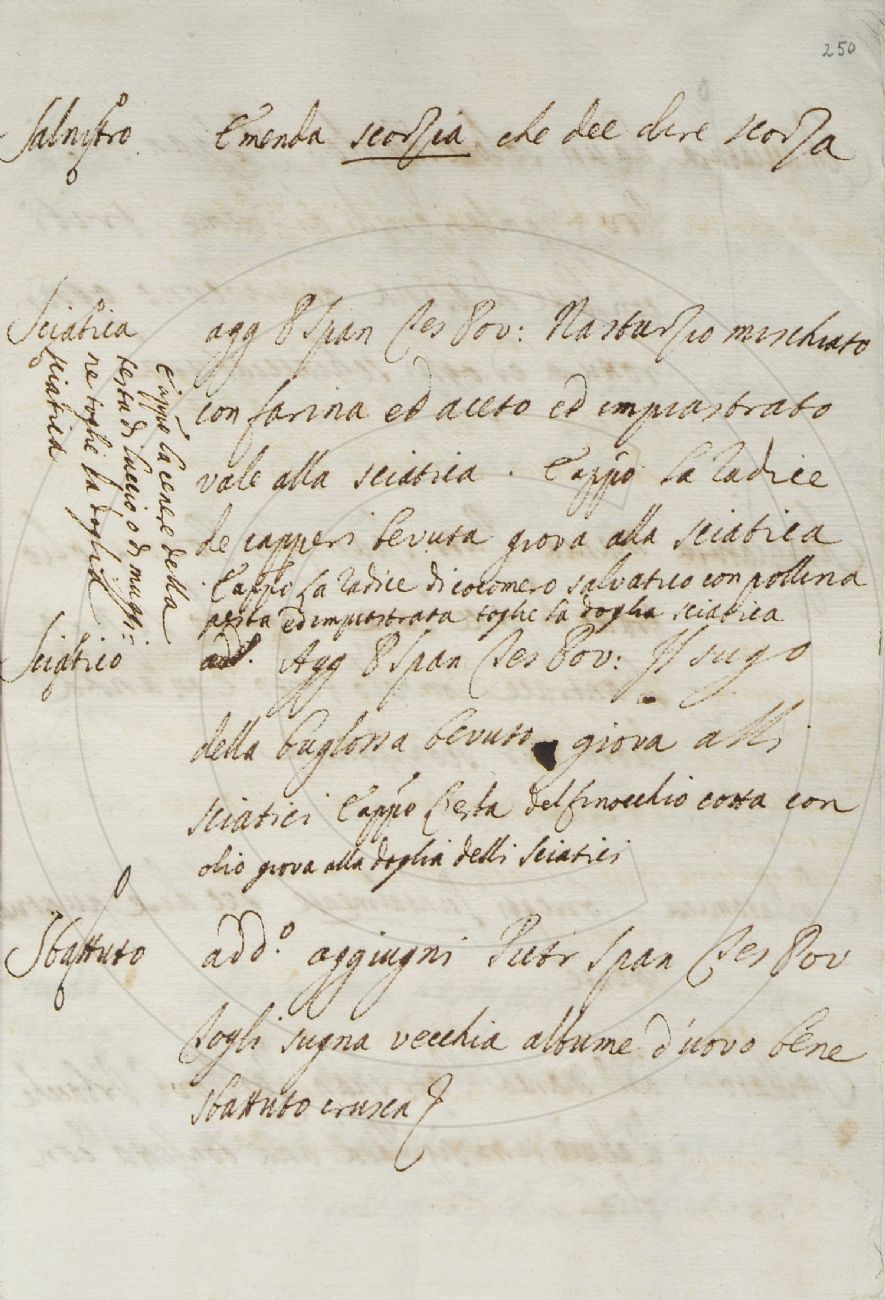 250
Salnistro Emenda scorzia che dee dire scorza
Sciatica agg P Span Tes Pov: Nasturzio mischiato
con farina ed aceto ed impiastrato
vale alla sciatica. E appo La radice
de capperi bevuta giova alla sciatica
E appo La radice di cocomero salvatico con pollina
pesta ed impiastrata toglie la doglia sciatica
E appo la cenere della
testa di luccio o di muggi=
ne toglie la doglia
sciatica
Sciatico add. Agg P Span Tes Pov: Il sugo
della buglossa bevuto giova alli
sciatici E appo Cesta del finocchio cotta con
olio giova alla doglia delli Sciatici
Sbattuto add.o aggiugni Pietr Span Tes Pov
Togli sugna vecchia albume d'uovo bene
sbattuto crusca